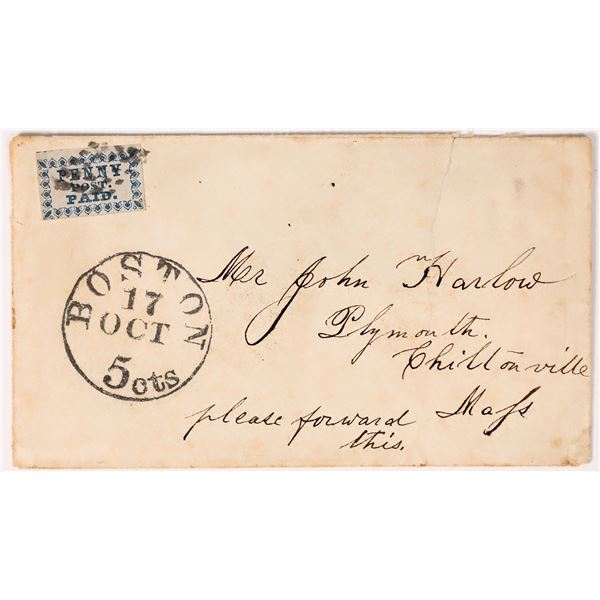 PENNY
POST.
PAID.
BOSTON
17
OCT
5cts
Mr John Harlow
Plymouth.
Chiltonville
Mass
please forward
this.